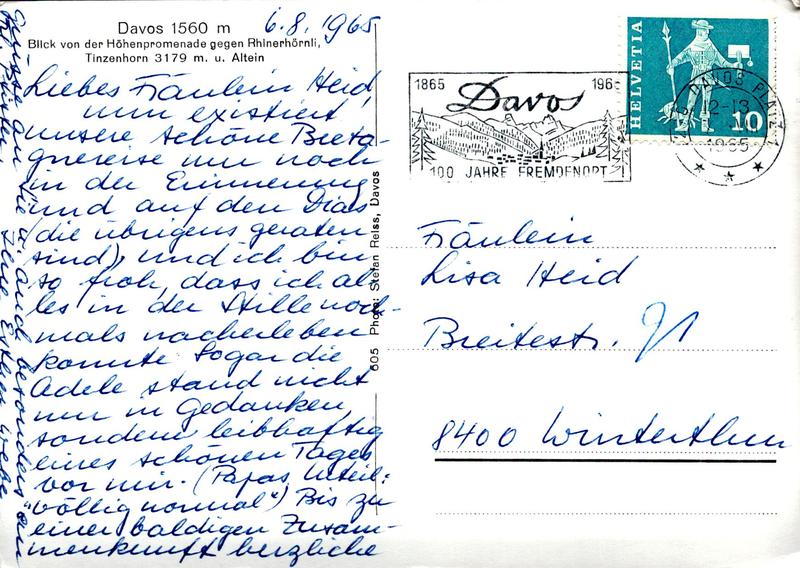 Davos 1560 m
Blick von der Höhenpromenade gegen Rhinerhörnli,
Tinzenhorn 3179 m. u. Altein
6.8.1965
Liebes Fräulein Heid,
nun existiert
unsere schöne Breta-
gnereise nur noch
in der Erinnerung
und auf den Dias
(die übrigens geraten
sind), und ich bin
so froh, dass ich al-
les in der Stille noch-
mals nacherleben
konnte. Sogar die
Adele stand nicht
nur in Gedanken,
sondern leibhaftig
eines schönen Tages
vor mir. (Papas Urteil:
"völlig normal") Bis zu
einer baldigen Zusam-
menkunft herzliche
Grüsse an Sie u. auch besonders an
Ihre Esther
605 Photo: Stefan Reiss, Davos
1865 1965
Davos
100 JAHRE FREMDENORT
HELVETIA
10
DAVOS PLATZ
12-13
1965
Fräulein
Lisa Heid
Breitestr. 91
8400 Winterthur